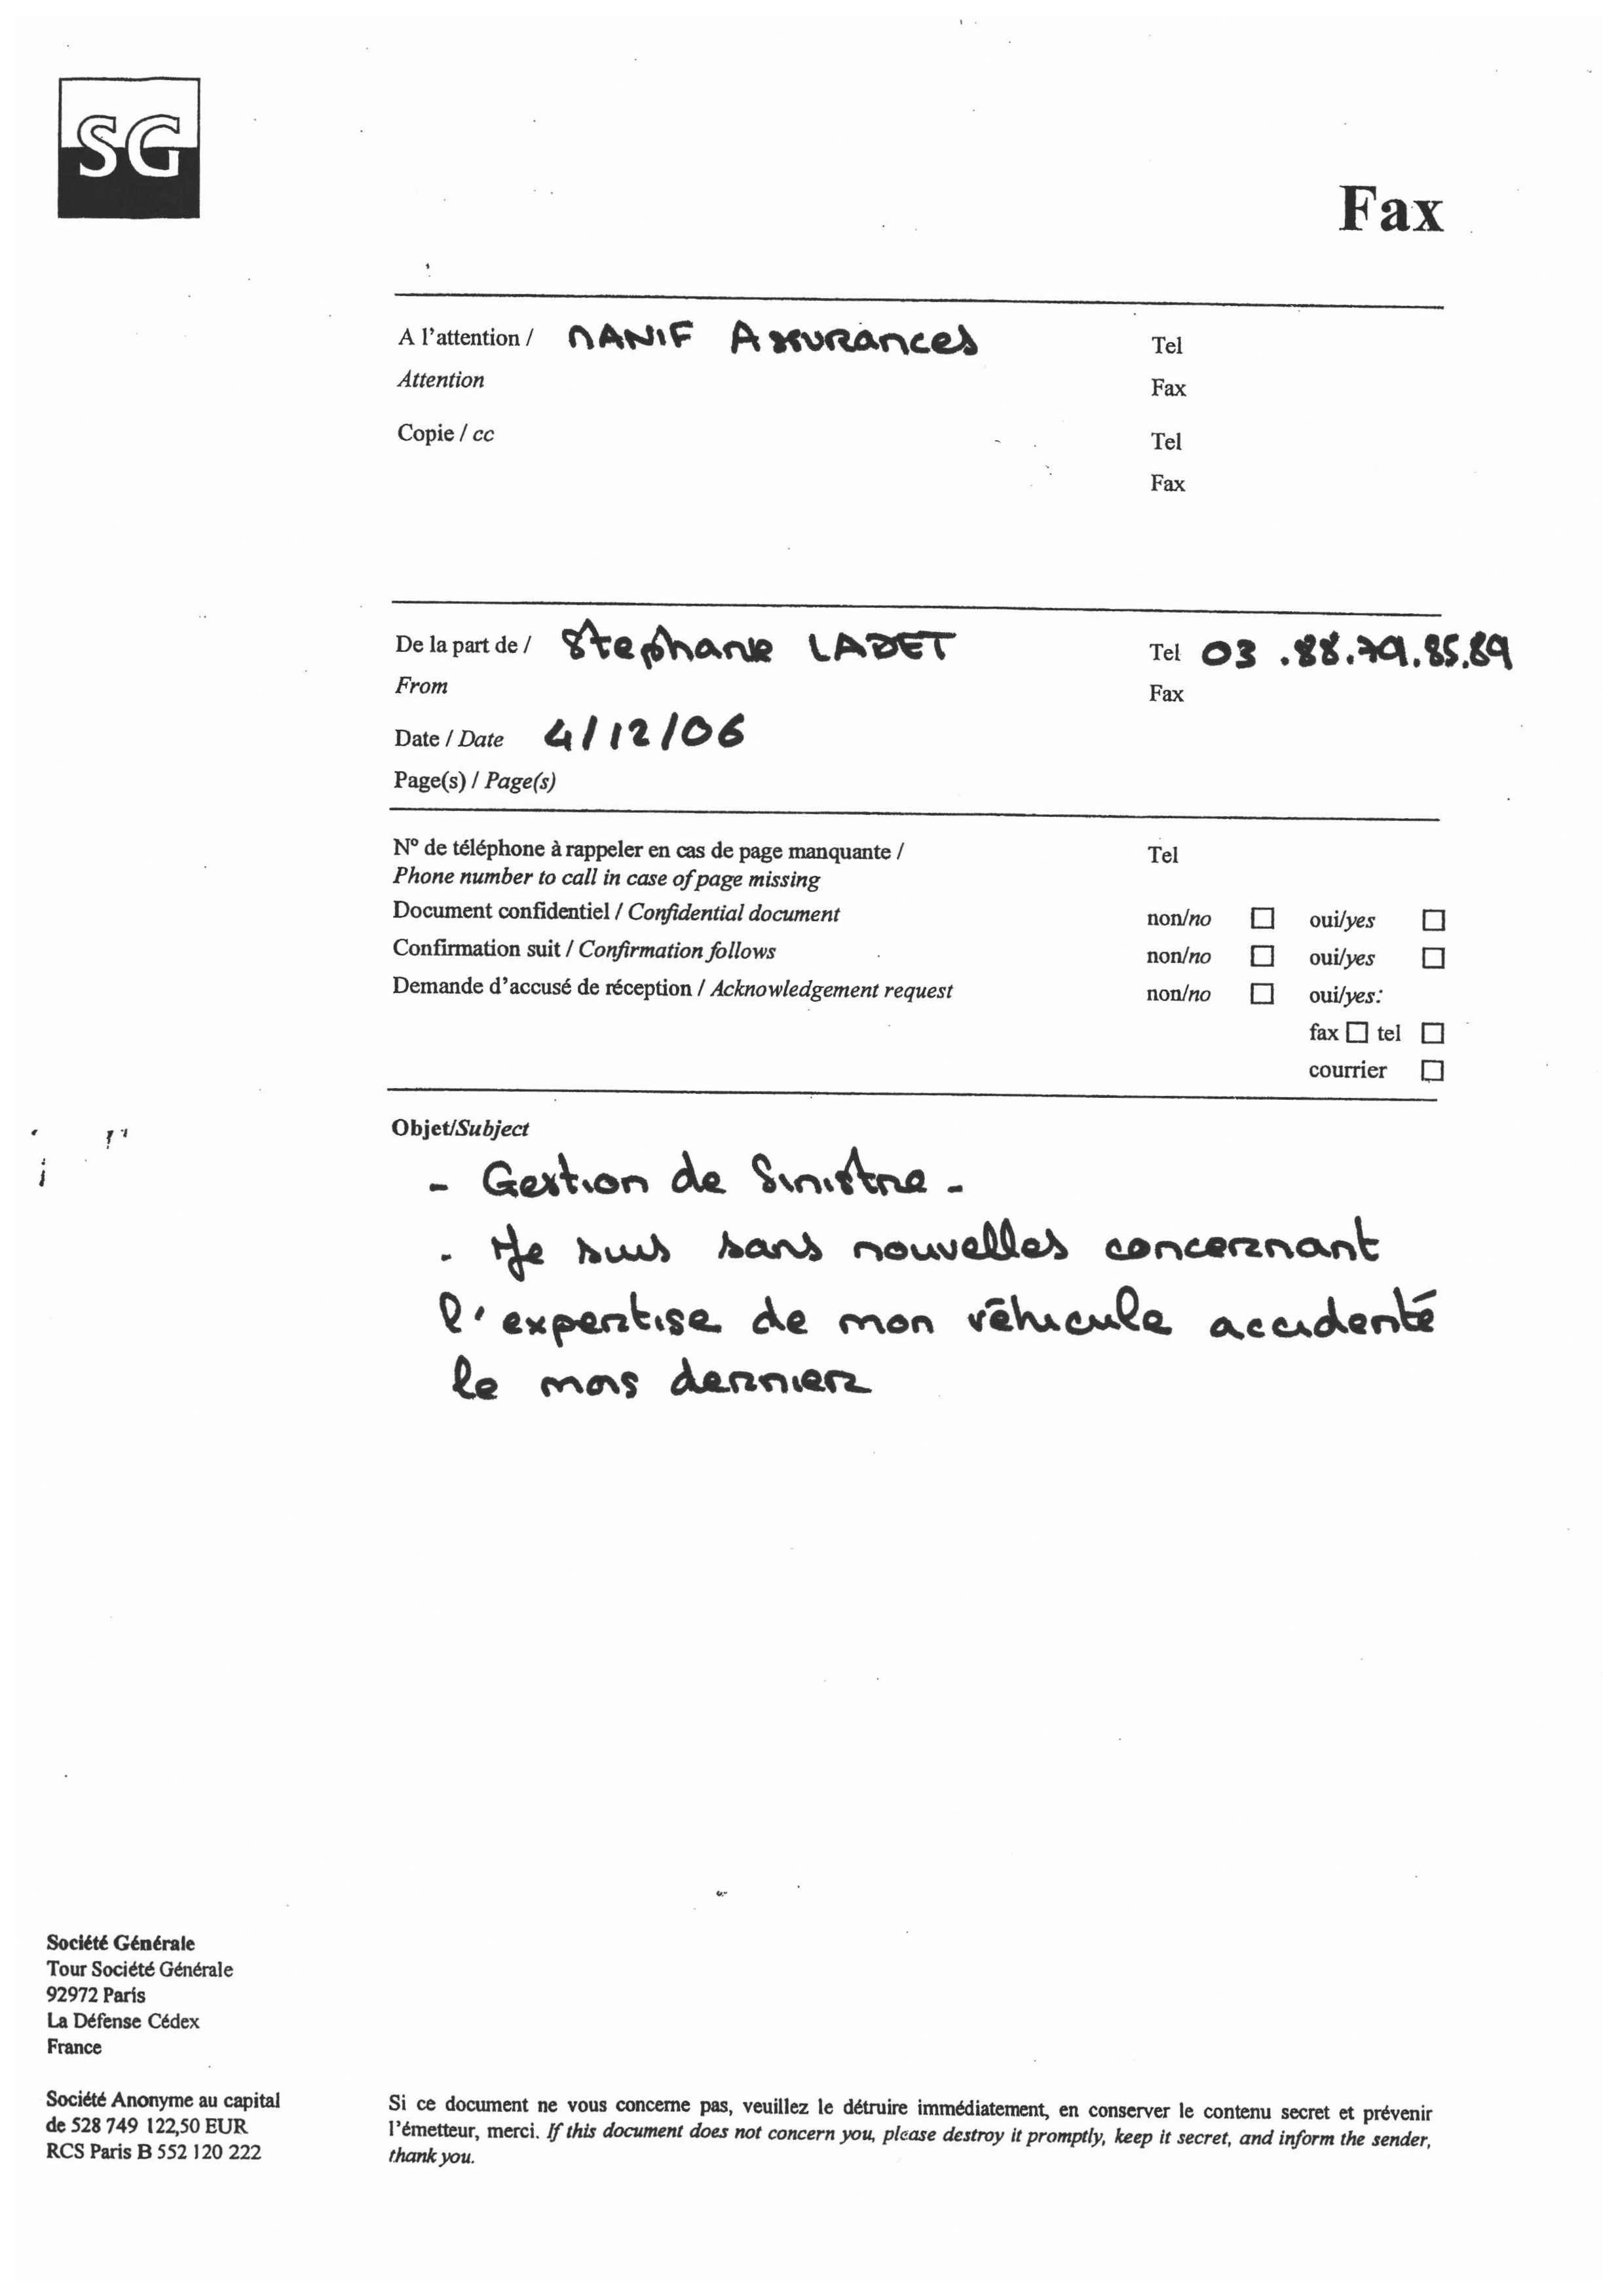 SG
Fax
A l'attention / MANIF Assurances Tel
Attention Fax
Copie / cc Tel
Fax
De la part de / Stephane LADET Tel 03.88.79.85.89
From Fax
Date / Date 4/12/06
Page(s) / Page(s)
N° de téléphone à rappeler en cas de page manquante / Tel
Phone number to call in case of page missing
Document confidentiel / Confidential document non/no ☐ oui/yes ☐
Confirmation suit / Confirmation follows non/no ☐ oui/yes ☐
Demande d'accusé de réception / Acknowledgement request non/no ☐ oui/yes:
fax ☐ tel ☐
courrier ☐
Objet/Subject
- Gestion de Sinistre -
- Je suis sans nouvelles concernant
l'expertise de mon véhicule accidenté
le mois dernier
Société Générale
Tour Société Générale
92972 Paris
La Défense Cédex
France
Société Anonyme au capital
de 528 749 122,50 EUR
RCS Paris B 552 120 222
Si ce document ne vous concerne pas, veuillez le détruire immédiatement, en conserver le contenu secret et prévenir
l'émetteur, merci. If this document does not concern you, please destroy it promptly, keep it secret, and inform the sender,
thank you.